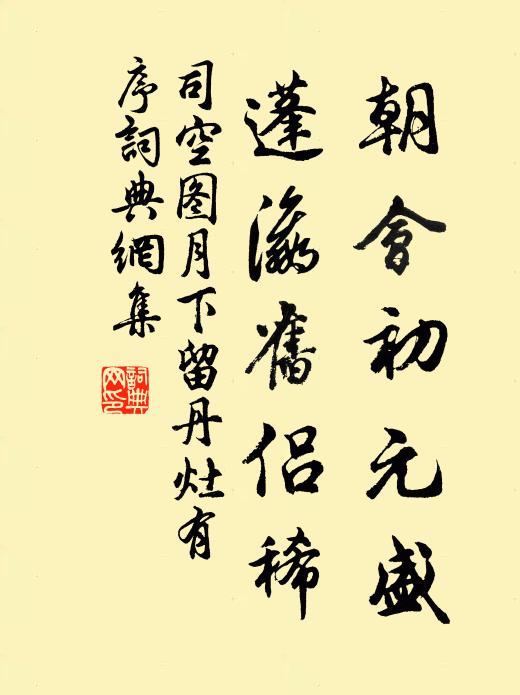 朝會初元盛
蓬瀛舊侶稀
司空图月下留丹灶有
序詞典網集
詞典网印